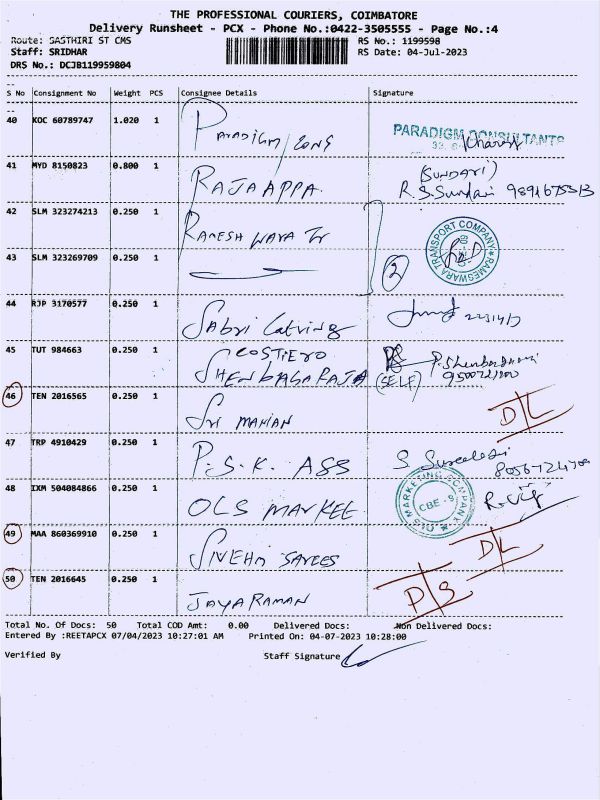 THE PROFESSIONAL COURIERS, COIMBATORE
Delivery Runsheet - PCX - Phone No.:0422-3505555 - Page No.:4
Route: SASTHIRI ST CMS RS No.: 1199598
Staff: SRIDHAR RS Date: 04-Jul-2023
DRS No.: DCJB119959804
S No Consignment No Weight PCS Consignee Details Signature
40 KOC 60789747 1.020 1 Paradigm / Cons PARADIGM CONSULTANTS
41 MYD 8150823 0.800 1 RAJAAPPA (SUNDARI)
R.S.Sundari 9891675513
42 SLM 323274213 0.250 1 RAMESHWARA Tr RAMESWARA TRANSPORT COMPANY
43 SLM 323269709 0.250 1 (2)
44 RJP 3170577 0.250 1 Sabri Catring
45 TUT 984663 0.250 1 COSTIERO
SHENBAGARAJA (SELF)
46 TEN 2016565 0.250 1 Sri MANIAN D/L
47 TRP 4910429 0.250 1 P.S.K. ASS
48 IXM 504084866 0.250 1 OLS MARKEE OLS MARKETING COMPANY CBE - 9
49 MAA 860369910 0.250 1 SNEHA SAREES D/L
50 TEN 2016645 0.250 1 JAYARAMAN D/S
Total No. Of Docs: 50 Total COD Amt: 0.00 Delivered Docs: Non Delivered Docs:
Entered By :REETAPCX 07/04/2023 10:27:01 AM Printed On: 04-07-2023 10:28:00
Verified By Staff Signature